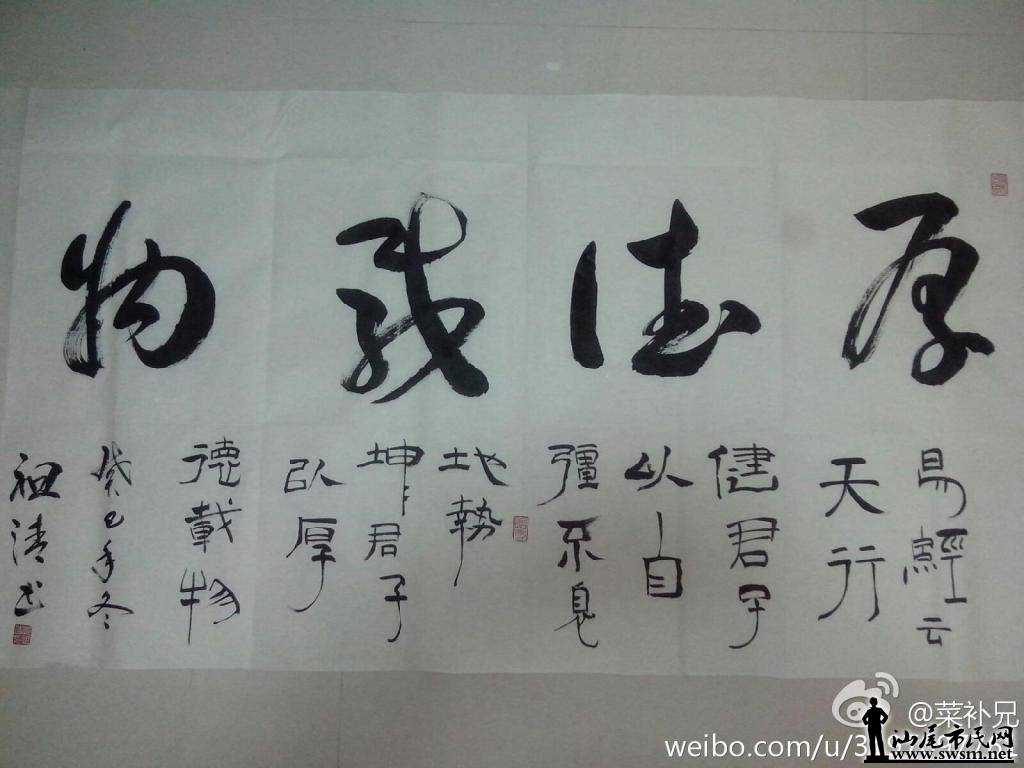 厚德載物
易經云
天行
健君子
以自
彊不息
地勢
坤君子
以厚
德載物
癸巳年冬
祖清书
@菜补兄
weibo.com/u/3
汕尾市民网
www.swsm.net